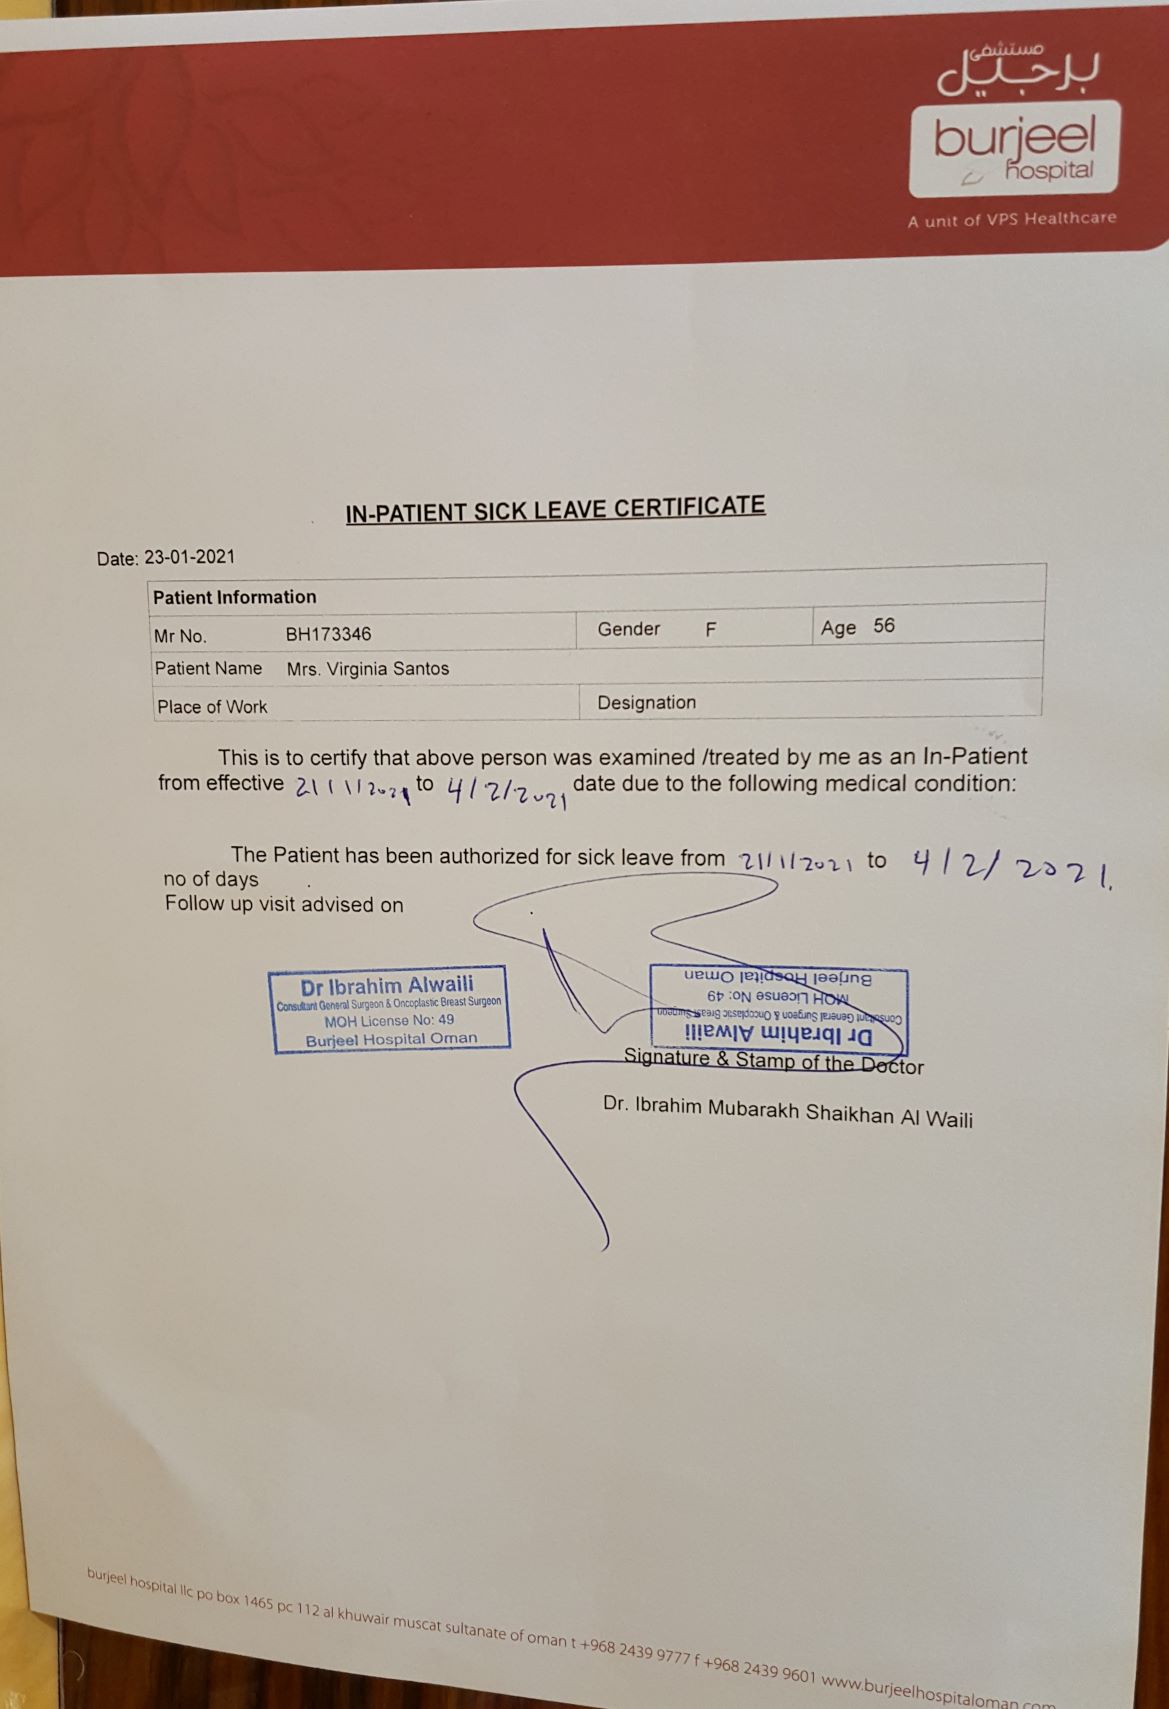 مستشفى
برجيل
burjeel
hospital
A unit of VPS Healthcare
IN-PATIENT SICK LEAVE CERTIFICATE
Date: 23-01-2021
Patient Information
Mr No. BH173346 Gender F Age 56
Patient Name Mrs. Virginia Santos
Place of Work Designation
This is to certify that above person was examined /treated by me as an In-Patient
from effective 21/1/2021 to 4/2/2021 date due to the following medical condition:
The Patient has been authorized for sick leave from 21/1/2021 to 4/2/2021.
no of days
Follow up visit advised on
Dr Ibrahim Alwaili
Consultant General Surgeon & Oncoplastic Breast Surgeon
MOH License No: 49
Burjeel Hospital Oman
Dr Ibrahim Alwaili
Consultant General Surgeon & Oncoplastic Breast Surgeon
MOH License No: 49
Burjeel Hospital Oman
Signature & Stamp of the Doctor
Dr. Ibrahim Mubarakh Shaikhan Al Waili
burjeel hospital llc po box 1465 pc 112 al khuwair muscat sultanate of oman t +968 2439 9777 f +968 2439 9601 www.burjeelhospitaloman.com